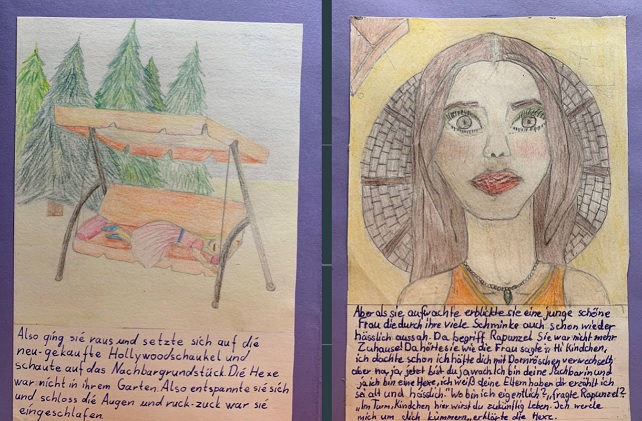 Also ging sie raus und setzte sich auf die
neu-gekaufte Hollywoodschaukel und
schaute auf das Nachbargrundstück. Die Hexe
war nicht in ihrem Garten. Also entspannte sie sich
und schloss die Augen und ruck-zuck war sie
eingeschlafen.
Aber als sie aufwachte erblickte sie eine junge schöne
Frau die durch ihre viele Schminke auch schon wieder
hässlich aussah. Da begriff Rapunzel: Sie war nicht mehr
Zuhause! Da hörte sie wie die Frau sagte: „Hi Kindchen,
ich dachte schon ich hätte dich mit Dornröschen verwechselt
aber na ja, jetzt bist du ja wach. Ich bin deine Nachbarin und
ja ich bin eine Hexe, ich weiß deine Eltern haben dir erzählt ich
sei alt und hässlich." „Wo bin ich eigentlich?", fragte Rapunzel?
„Im Turm, Kindchen hier wirst du zukünftig leben. Ich werde
mich um dich kümmern", erklärte die Hexe.